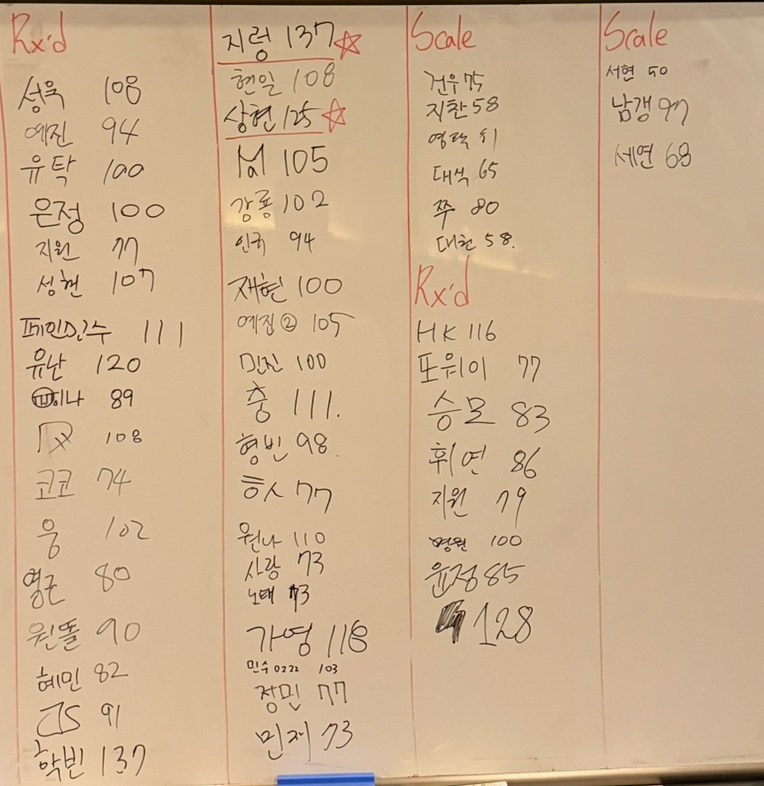 Rx'd
성욱 108
예진 94
유탁 100
은정 100
지원 77
성현 107
페인민수 111
유난 120
89
Rx 108
코코 74
웅 102
영근 80
원똘 90
혜민 82
JS 91
학빈 137
지렁 137☆
현일 108
상현 125☆
105
강룡 102
인국 94
재현 100
예진② 105
민진 100
충 111.
형빈 98.
77
원나 110
사랑 73
노태 73
가영 118
민수0222 103
정민 77
민제 73
Scale
건우 75
지찬 58
영락 51
대석 65
쭈 80
대현 58.
Rx'd
HK 116
포워이 77
승모 83
휘연 86
지원 79
명원 100
윤정 85
128
Scale
서현 50
남갱 97
세연 68